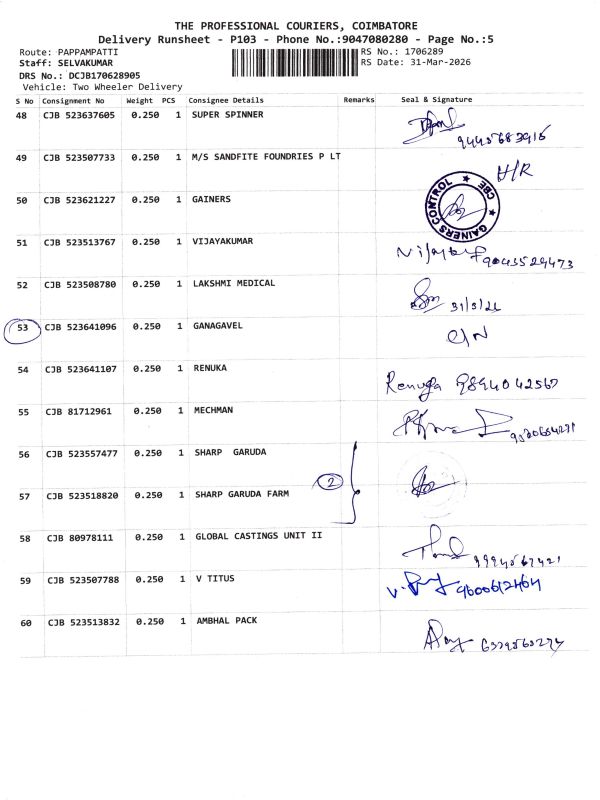 THE PROFESSIONAL COURIERS, COIMBATORE
Delivery Runsheet - P103 - Phone No.:9047080280 - Page No.:5
Route: PAPPAMPATTI
RS No.: 1706289
Staff: SELVAKUMAR
RS Date: 31-Mar-2026
DRS No.: DCJB170628905
Vehicle: Two Wheeler Delivery
S No Consignment No Weight PCS Consignee Details Remarks Seal & Signature
48 CJB 523637605 0.250 1 SUPER SPINNER
49 CJB 523507733 0.250 1 M/S SANDFITE FOUNDRIES P LT H/R
50 CJB 523621227 0.250 1 GAINERS GAINERS CONTROL ★ CBE ★
51 CJB 523513767 0.250 1 VIJAYAKUMAR
52 CJB 523508780 0.250 1 LAKSHMI MEDICAL 31/3/26
53 CJB 523641096 0.250 1 GANAGAVEL
54 CJB 523641107 0.250 1 RENUKA Renuga 9894042567
55 CJB 81712961 1 0.250 1 MECHMAN
56 CJB 523557477 0.250 1 SHARP GARUDA
2
57 CJB 523518820 0.250 1 SHARP GARUDA FARM
58 CJB 80978111 0.250 1 GLOBAL CASTINGS UNIT II
59 CJB 523507788 0.250 1 V TITUS 9600612464
60 CJB 523513832 0.250 1 AMBHAL PACK